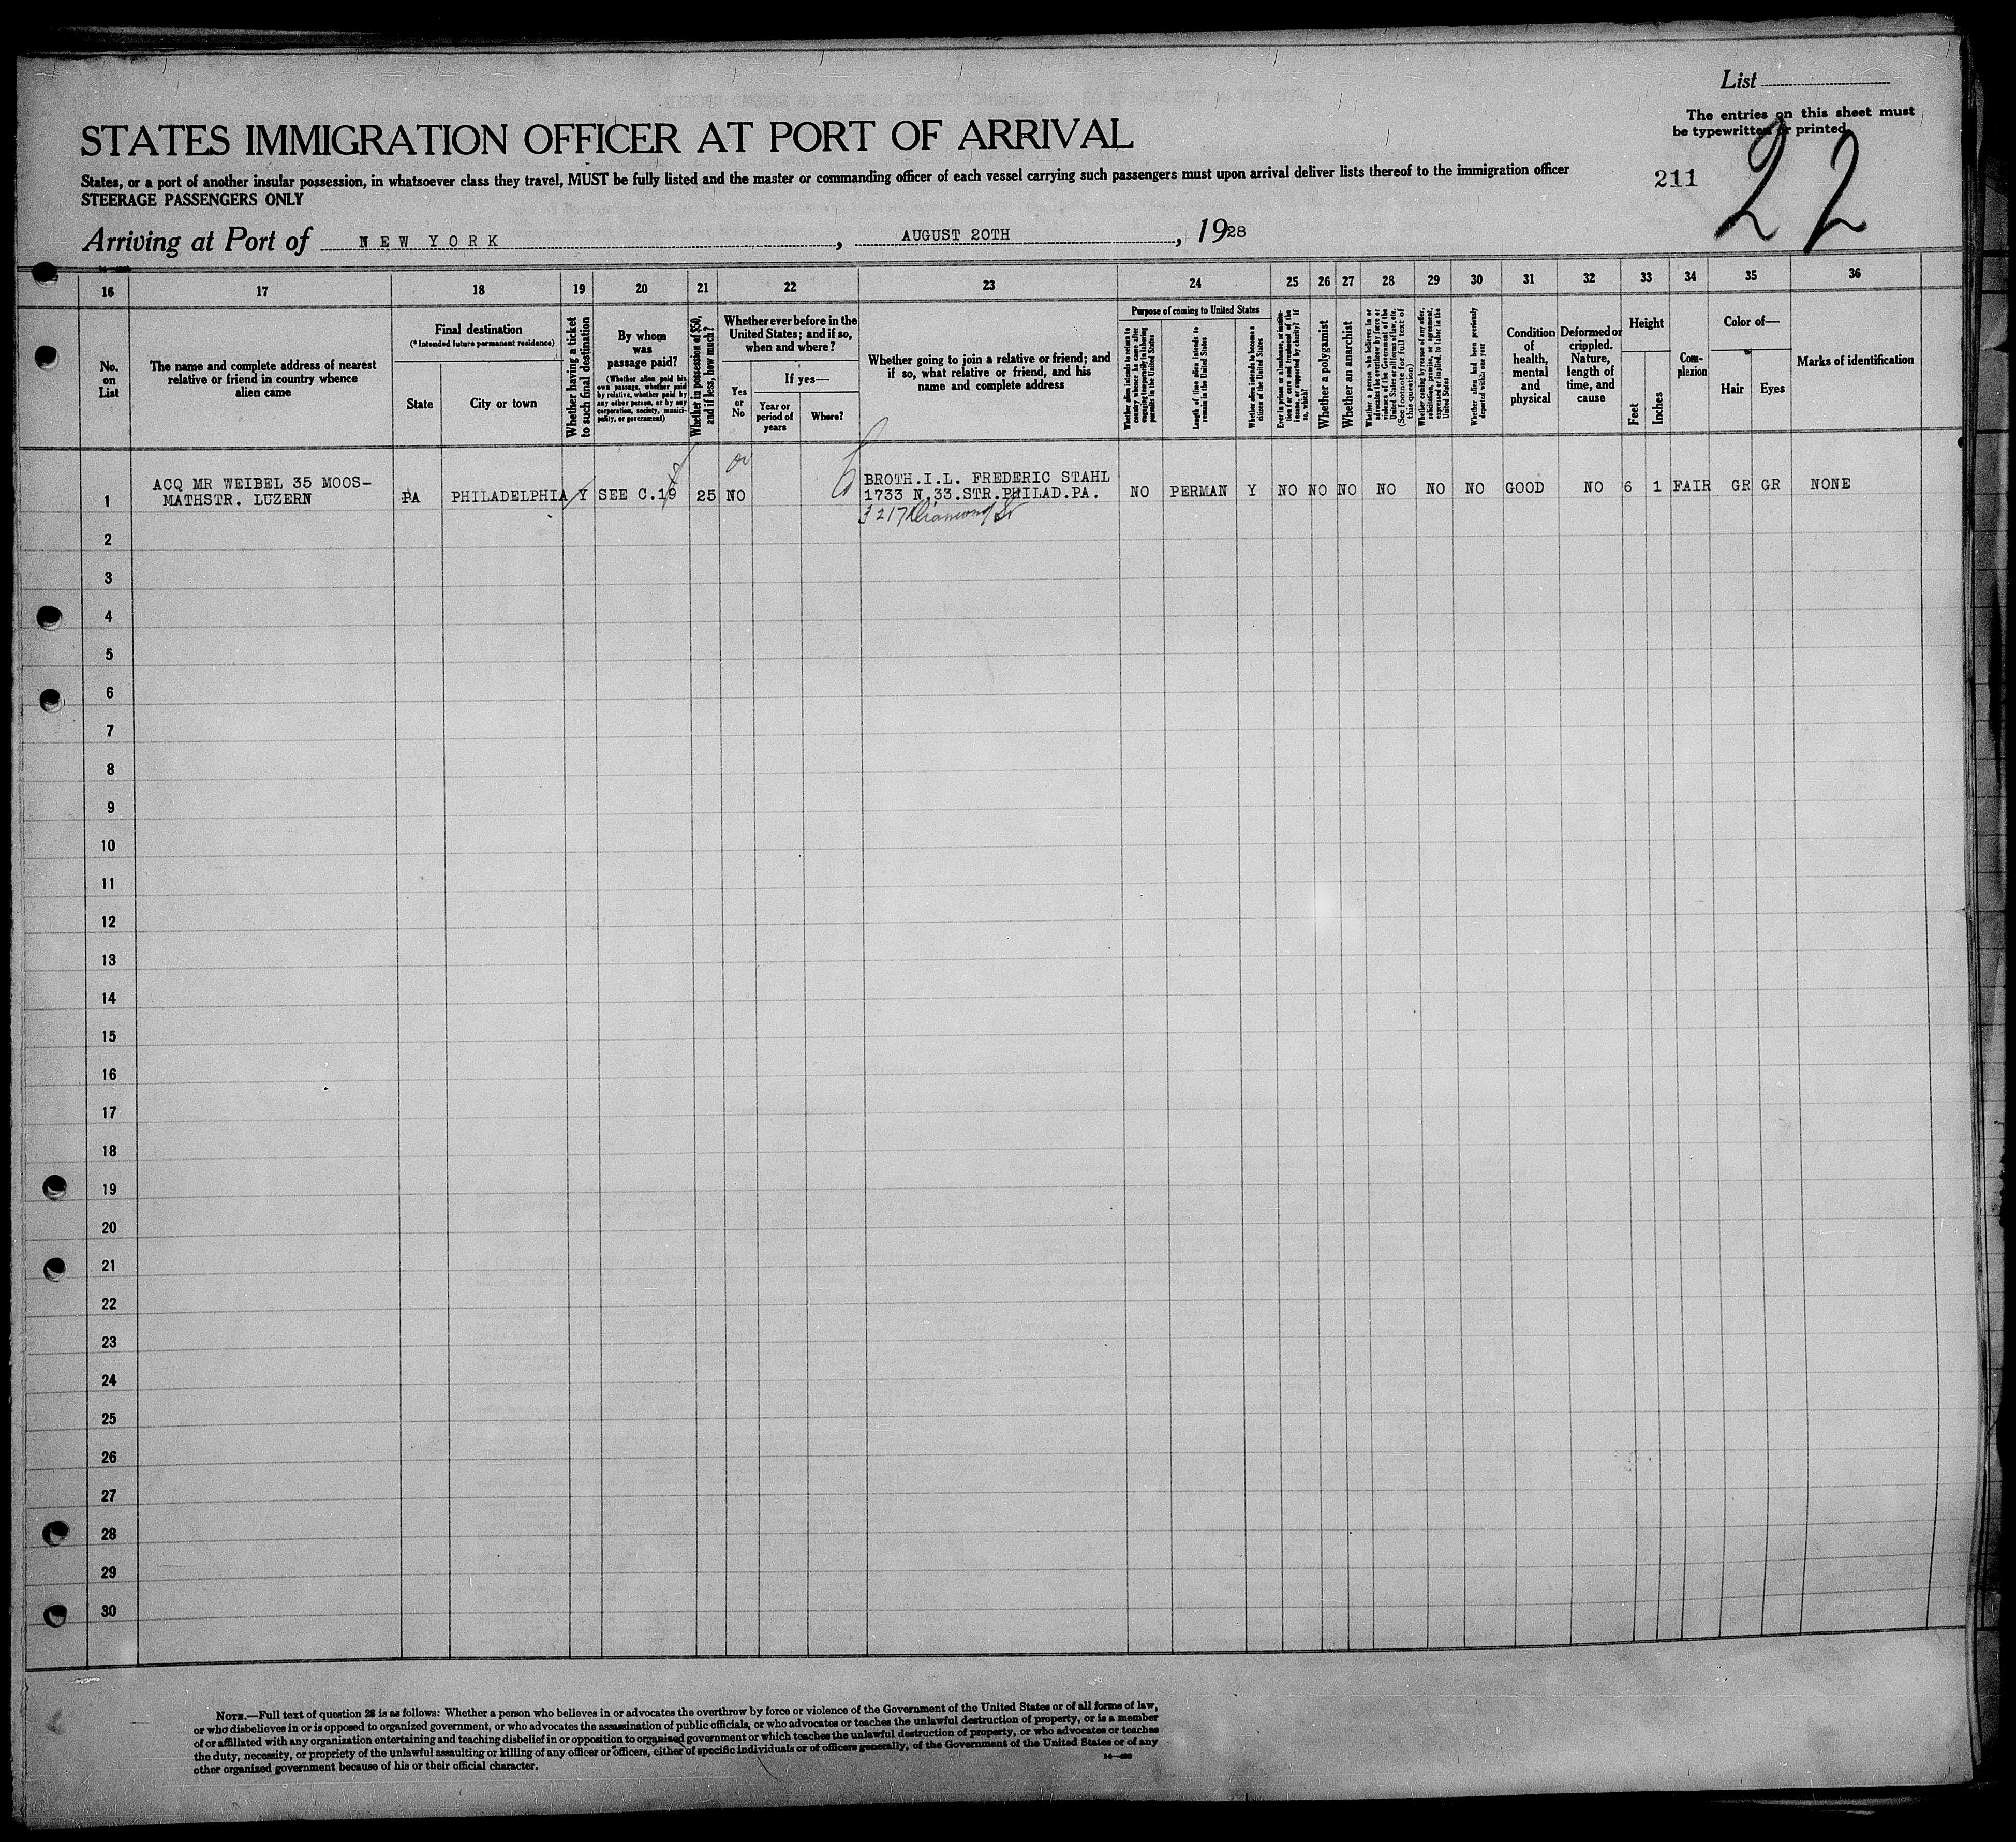 List
The entries on this sheet must
be typewritten or printed.
STATES IMMIGRATION OFFICER AT PORT OF ARRIVAL
211
22
States, or a port of another insular possession, in whatsoever class they travel, MUST be fully listed and the master or commanding officer of each vessel carrying such passengers must upon arrival deliver lists thereof to the immigration officer
STEERAGE PASSENGERS ONLY
Arriving at Port of NEW YORK, AUGUST 20TH, 1928
16 17 18 19 20 21 22 23 24 25 26 27 28 29 30 31 32 33 34 35 36
No.
on
List
The name and complete address of nearest
relative or friend in country whence
alien came
Final destination
(*Intended future permanent residence)
State
City or town
Whether having a ticket
to such final destination
By whom
was
passage paid?
(Whether alien paid his
own passage, whether paid
by relative, whether paid by
any other person, or by any
corporation, society, munici-
pality, or government)
Whether in possession of $50,
and if less, how much?
Whether ever before in the
United States; and if so,
when and where?
Yes
or
No
If yes—
Year or
period of
years
Where?
Whether going to join a relative or friend; and
if so, what relative or friend, and his
name and complete address
Purpose of coming to United States
Whether alien intends to return to
country whence he came after
engaging temporarily in laboring
pursuits in the United States
Length of time alien intends to
remain in the United States
Whether alien intends to become a
citizen of the United States
Ever in prison or almshouse, or institu-
tion for care and treatment of the
insane, or supported by charity? If
so, which?
Whether a polygamist
Whether an anarchist
Whether a person who believes in or
advocates the overthrow by force or
violence of the Government of the
United States or all forms of law, etc.
(See footnote for full text of
this question)
Whether coming by reason of any offer,
solicitation, promise, or agreement,
expressed or implied, to labor in the
United States
Whether alien had been previously
deported within one year
Condition
of
health,
mental
and
physical
Deformed or
crippled.
Nature,
length of
time, and
cause
Height
Feet
Inches
Com-
plexion
Color of—
Hair
Eyes
Marks of identification
ACQ MR WEIBEL 35 MOOS-
MATHSTR. LUZERN
BROTH.I.L. FREDERIC STAHL
1 PA PHILADELPHIA Y SEE C.19 25 NO 1733 N.33.STR.PHILAD.PA. NO PERMAN Y NO NO NO NO NO NO GOOD NO 6 1 FAIR GR GR NONE
3217 Diamond St
2
3
4
5
6
7
8
9
10
11
12
13
14
15
16
17
18
19
20
21
22
23
24
25
26
27
28
29
30
NOTE.—Full text of question 28 is as follows: Whether a person who believes in or advocates the overthrow by force or violence of the Government of the United States or of all forms of law,
or who disbelieves in or is opposed to organized government, or who advocates the assassination of public officials, or who advocates or teaches the unlawful destruction of property, or is a member
of or affiliated with any organization entertaining and teaching disbelief in or opposition to organized government or which teaches the unlawful destruction of property, or who advocates or teaches
the duty, necessity, or propriety of the unlawful assaulting or killing of any officer or officers, either of specific individuals or of officers generally, of the Government of the United States or of any
other organized government because of his or their official character.